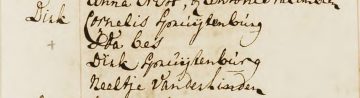 Dirk Cornelis Spruijtenburg
Ida bes
Dirk Spruijtenburg
Neeltje Vanderlinden